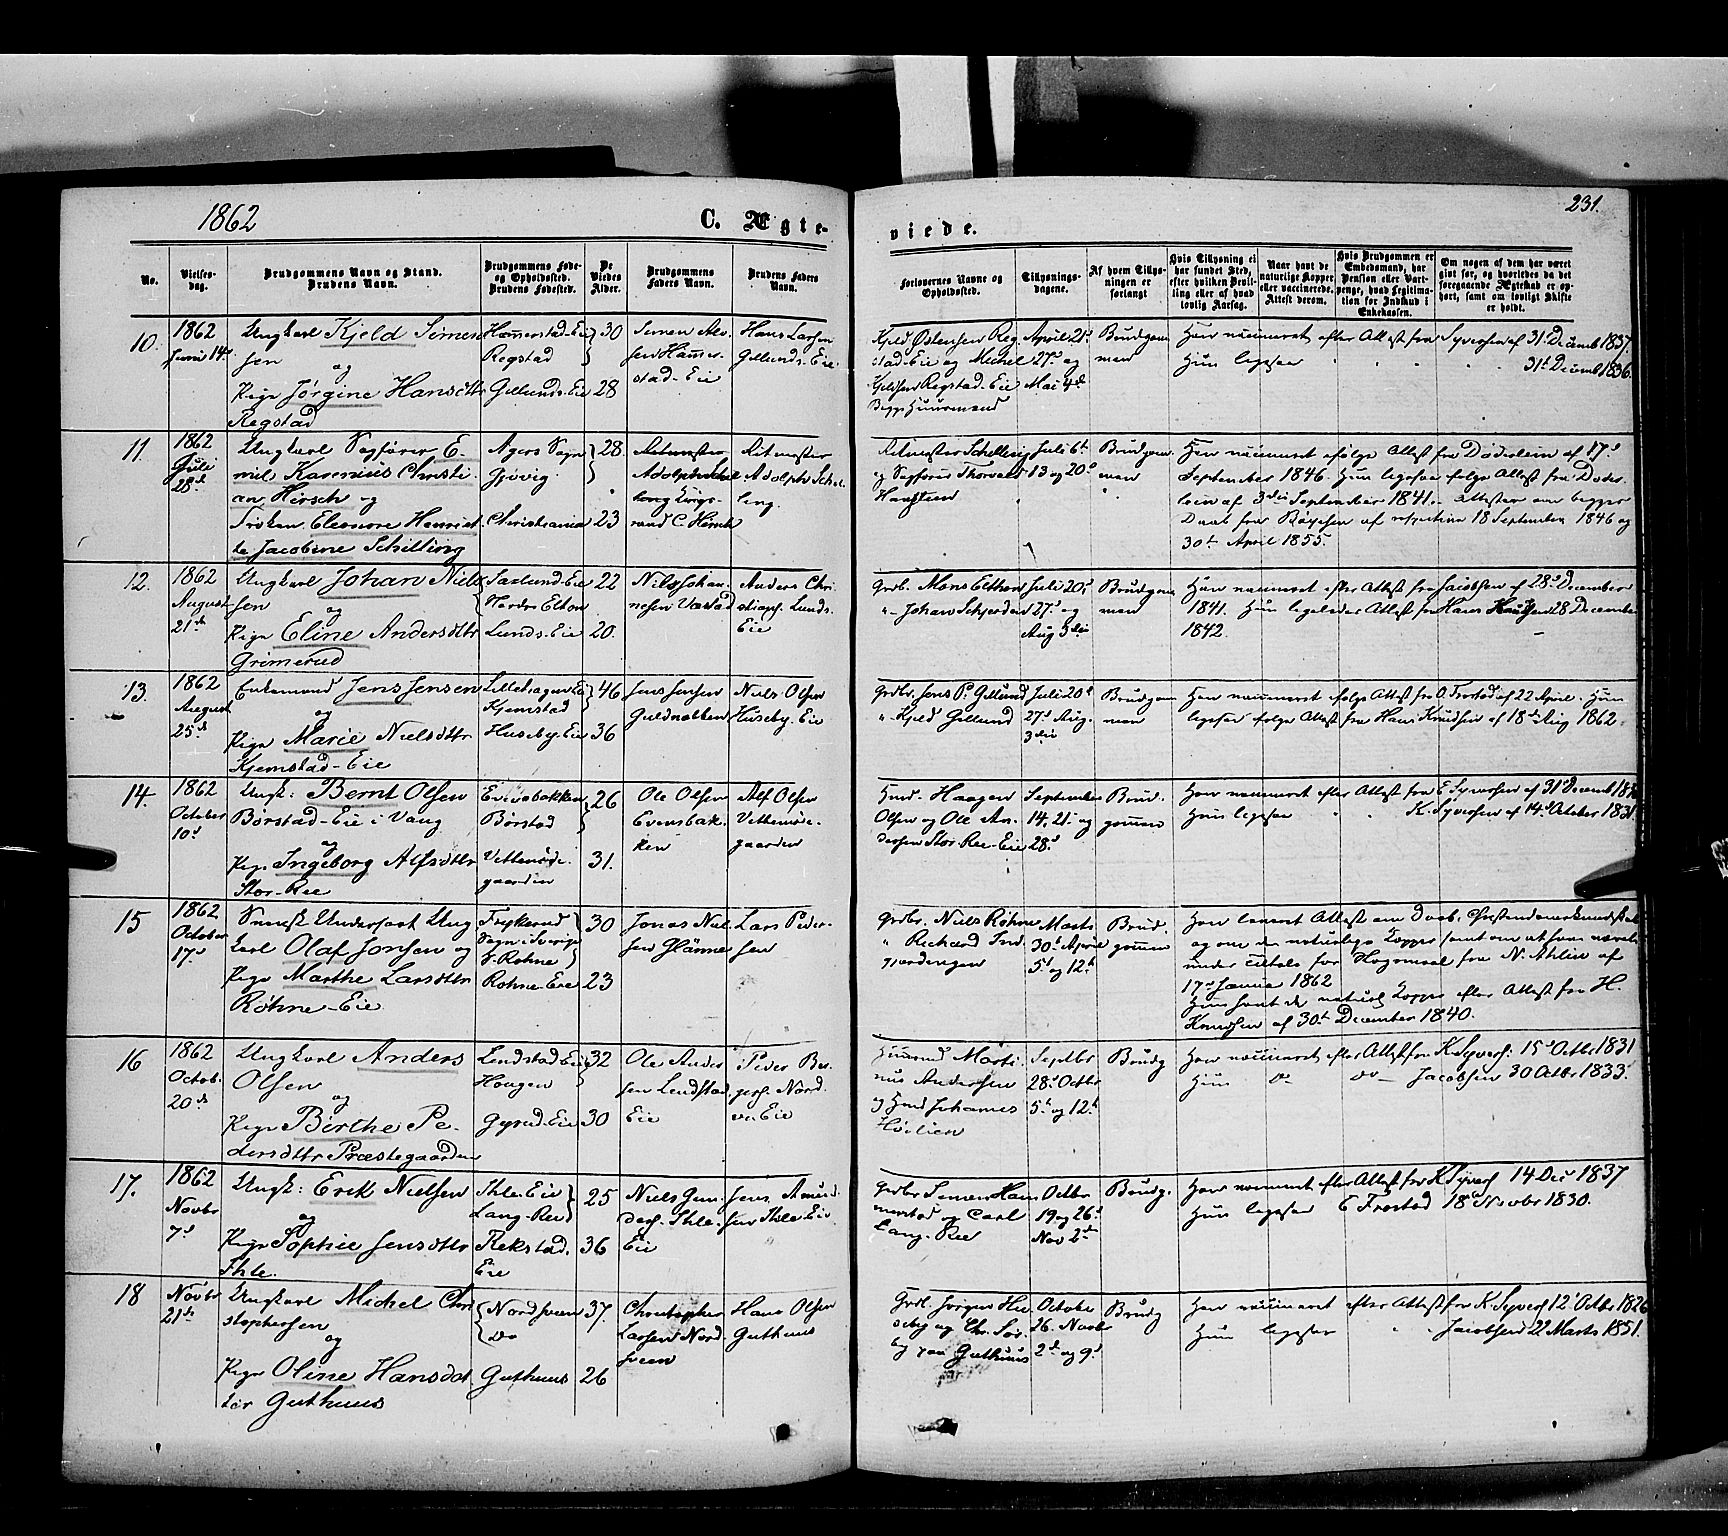 1862
C. Ægte-
viede.
231.
No.
Vielses-
dag.
Brudgommens Navn og Stand.
Brudens Navn.
Brudgommens Føde-
og Opholdssted.
Brudens Fødested.
De
Viedes
Alder.
Brudgommens
Faders Navn.
Brudens Faders
Navn.
Forlovernes Navne og
Opholdssted.
Tillysnings-
dagene.
Af hvem Tillys-
ningen er
forlangt
Hvis Tillysning ei
har fundet Sted,
efter hvilken Bevil-
ling eller af hvad
lovlig Aarsag.
Naar havt de
naturlige Kopper
eller vaccinerede.
Attest derom.
Hvis Brudgommen er
Embedsmand, har
Pension eller Vart-
penge, hvad Legitima-
tion for Indskud i
Enkekassen.
Om nogen af dem har været
gift før, og hvorledes da det
foregaaende Ægteskab er op-
hørt, samt om lovligt Skifte
er holdt.
10.
1862
Juni 14
Ungkarl Kjeld Simen
sen
og
Pige Jørgine Hansdttr
Regstad
Hammerstad-Eie
Regstad
Gillunds-Eie
30
28
Simen
sen Hammer-
stad-Eie
Hans Larsen
Gillunds-Eie
Kjeld Østensen Reg
stad-Eie og Michel
Kjeldsen Regstad-Eie
Begge Huusmænd
April 21
27 og
Mai 4de
Brudgom
men
Han vaccineret efter Attest fra Syversen af 31 Decemb 1837.
Hun ligesaa 31t Decemb 1836.
11.
1862
Juli
28de
Ungkarl Sagfører E-
mil Karenius Christi
an Hirsch og
Frøken Eleonore Henriet
te Jacobine Schilling
Agers Sogn
Gjøvig
Christiania
28
23
Ritmester
C. Hirsch
Ritmester
Adolph Schil
ling.
Ritmester Schilling
og Sagfører Thorvald
Juli 6te
13 og 20de
Brudgom
men
Han vaccineret ifølge Attest fra Døderlein af 17d
September 1846. Hun ligesaa følge Attest fra Døder
lein af 3die September 1841. Attester om begges
Daab fra Boyesen af 18 September 1846 og
30te April 1855.
12.
1862
August
21de
Ungkarl Johan Niels
sen
og
Pige Eline Andersdttr
Grimerud
Saxlund-Eie
Nordre Elton
Lunds-Eie
22
20.
Nils Johan-
nesen
Anders Chri
stians. Lunds-
Eie
Grdb. Mons Elthon
" Johan
Juli 20,
27de og
Aug 3die
Brudgom
men
Han vaccineret efter Attest fra Jacobsen af 28de December
1841. Hun ligeledes Attest fra Hans Knudsen 28 December
1842.
13.
1862
August
25de
Enkemand Jens Jensen
og
Pige Marie Nielsdttr
Kjemstad-Eie
Lillehagen Eie
Kjemstad
Huseby-Eie
46
36
Jens Jensen
Guldnakken
Niels Olsen
Huseby-Eie
Grdbr. Jens P. Gillund
" Kjeld Gillund
Juli 20de
27de Aug.
3die
Brudgom
men
Han vaccineret følge Attest fra O. Frostad af 22 April. Hun
ligesaa følge Attest fra Hans Knudsen af 18de Aug 1862.
14.
1862
October
10de
Ungk: Bernt Olsen
Børstad-Eie i Vang
og
Pige Ingeborg Alfsdttr
Stor-Ree
Evensbakken
Børstad
Vettemøe-
gaarden
26
31.
Ole Olsen
Evensbak-
ken
Alf Olsen
Vettemøe-
gaarden
Hmd. Haagen
Olsen og Ole An-
dersen Stor Ree-Eie
September
14, 21 og
28de
Brud-
gommen
Han vaccineret efter Attest fra E Syversen af 31 Decemb
Hun ligesaa K. Syversen af 14de October 1831
15
1862
October
17de
Svensk Undersaat Ung
karl Olaf Jonsen og
Pige Marthe Larsdttr
Røhne-Eie
Frykerud
Sogn i Sverige
Røhne
Røhne-Eie
30
23
Jonas Niel
sen Glänne
Lars Peder-
sen
Grdbr. Niels Røhne
" Richard
Marts
30te April
5te og 12te
Brud-
gommen
Han leveret Attest om Daab, Christendomskundskab
og om de naturlige Kopper samt om at han været
under Tiltale for fra N. Ahlin af
17de Januar 1862
Hun havt de naturl Kopper efter Attest fra H.
Knudsen af 30te December 1840.
16
1862
Octob.
20de
Ungkarl Anders
Olsen
og
Pige Birthe Pe-
dersdttr Præstegaarden
Lundstad Eie
Haagen
Gyrud-Eie
32
30
Ole Ander
sen Lundstad
Eie
Peder
Eie
Huusmd Marti
nus Andersen
og Hmd Johannes
Høilien
Septbr
28de Octbr
5te og 12te
Brudg
Han vaccineret efter Attest fra K Syvers: 15de Octbr 1831
Hun do do Jacobsen 30 Octbr 1833.
17.
1862
Novbr
7de
Ungk: Erik Nielsen
og
Pige Sophie Jensdttr
Ihle.
Ihle-Eie
Lang-Ree
Rekstad-
Eie
25
36
Niels Gun
ders. Ihle-
Eie
Jens Amund
sen Ihle Eie
Grdbr Simen Ham
merstad og Carl
Lang-Ree
Octbr
19 og 26de
Nov 2den
Brudg.
Han vaccineret efter Attest fra K Syvers 14 Dec 1837
Hun ligesaa E Frostad 18de Novbr 1830.
18
Novbr
21de
Ungkarl Michel Chri
stophersen
og
Pige Oline Hansdat
ter Guthuus
Nordsveen
do
Guthuus
37.
26
Christopher
Larsen Nord
sveen
Hans Olsen
Guthuus
Grdb. Jørgen
og Chr. Sør-
paa Guthuus
Octobr
26. Novbr
2de og 9de
Brudg
Han vaccineret efter Attest fra K. Syvers 12 Octbr 1826
Hun ligesaa Jacobsen 22 Marts 1851.